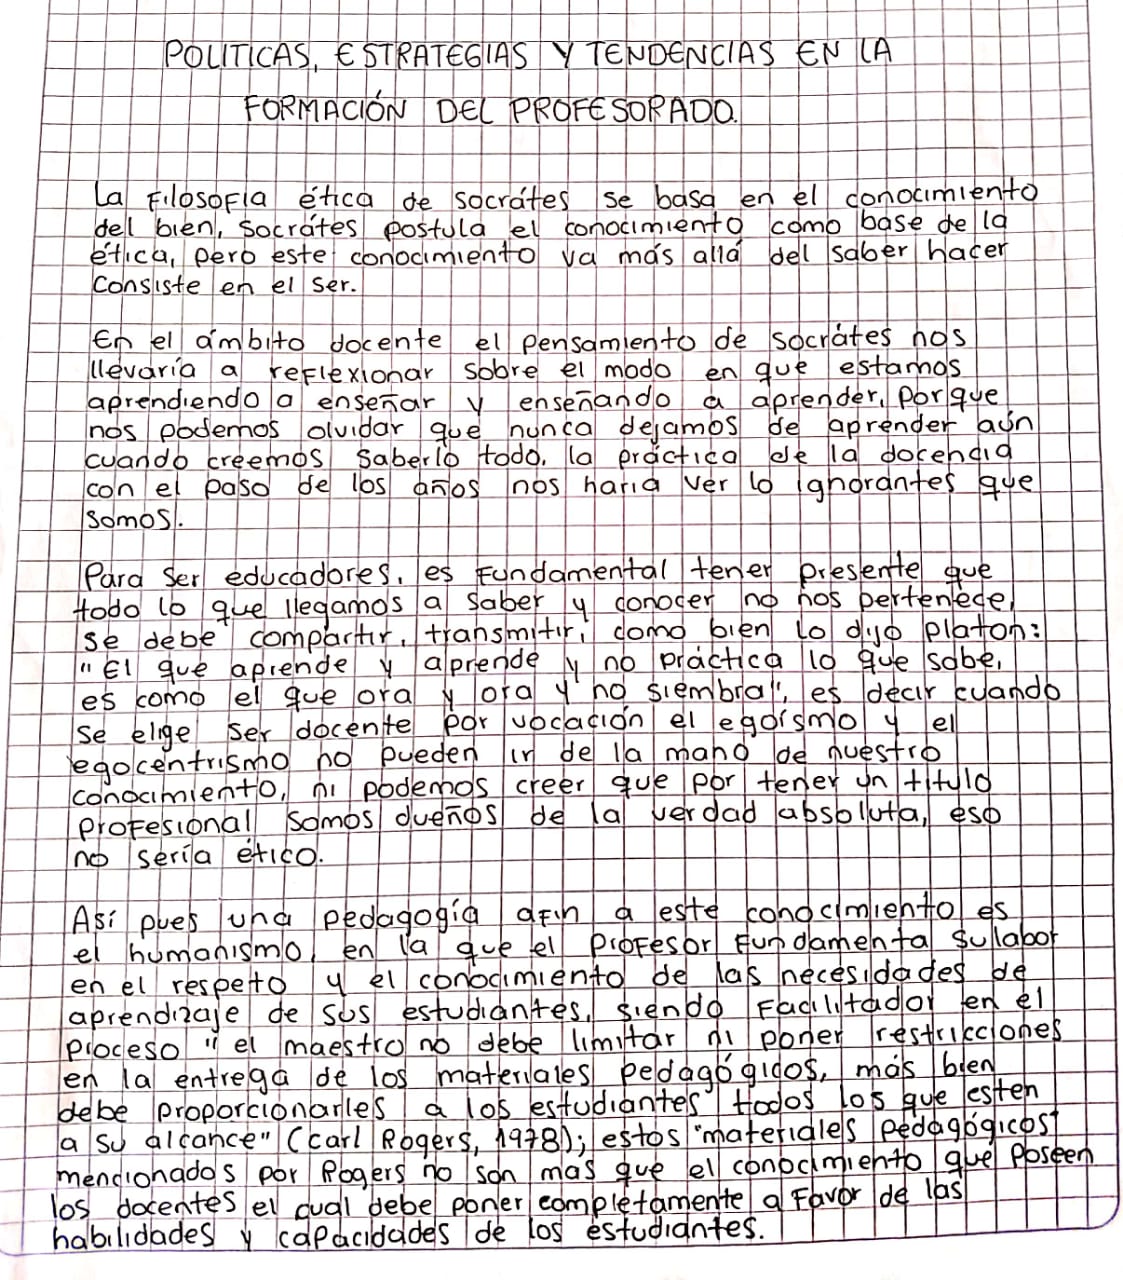 POLITICAS, ESTRATEGIAS Y TENDENCIAS EN LA
FORMACIÓN DEL PROFESORADO.
La Filosofia ética de socrátes se basa en el conocimiento
del bien, Socrátes postula el conocimiento como base de la
ética, pero este conocimiento va más allá del saber hacer
Consiste en el ser.
En el ámbito docente el pensamiento de socrátes nos
llevaría a reflexionar sobre el modo en que estamos
aprendiendo a enseñar y enseñando a aprender, porque
nos podemos olvidar que nunca dejamos de aprender aún
cuando creemos saberlo todo, la práctica de la docencia
con el paso de los años nos haria ver lo ignorantes que
somos.
Para ser educadores, es Fundamental tener presente que
todo lo que llegamos a saber y conocer no nos pertenece,
se debe compartir, transmitir, como bien lo dijo Platon:
"El que aprende y aprende y no práctica lo que sabe,
es como el que ora y ora y no siembra", es decir cuando
se elige ser docente por vocación el egoísmo y el
egocentrismo no pueden ir de la mano de nuestro
conocimiento, ni podemos creer que por tener un titulo
profesional somos dueños de la verdad absoluta, eso
no sería ético.
Así pues una pedagogía afin a este conocimiento es
el humanismo, en la que el profesor Fundamenta su labor
en el respeto y el conocimiento de las necesidades de
aprendizaje de sus estudiantes, siendo Facilitador en el
proceso "el maestro no debe limitar ni poner restricciones
en la entrega de los materiales pedagógicos, más bien
debe proporcionarles a los estudiantes todos los que esten
a su alcance" (Carl Rogers, 1978); estos "materiales pedagógicos"
mencionados por Rogers no son mas que el conocimiento que poseen
los docentes el cual debe poner completamente a Favor de las
habilidades y capacidades de los estudiantes.